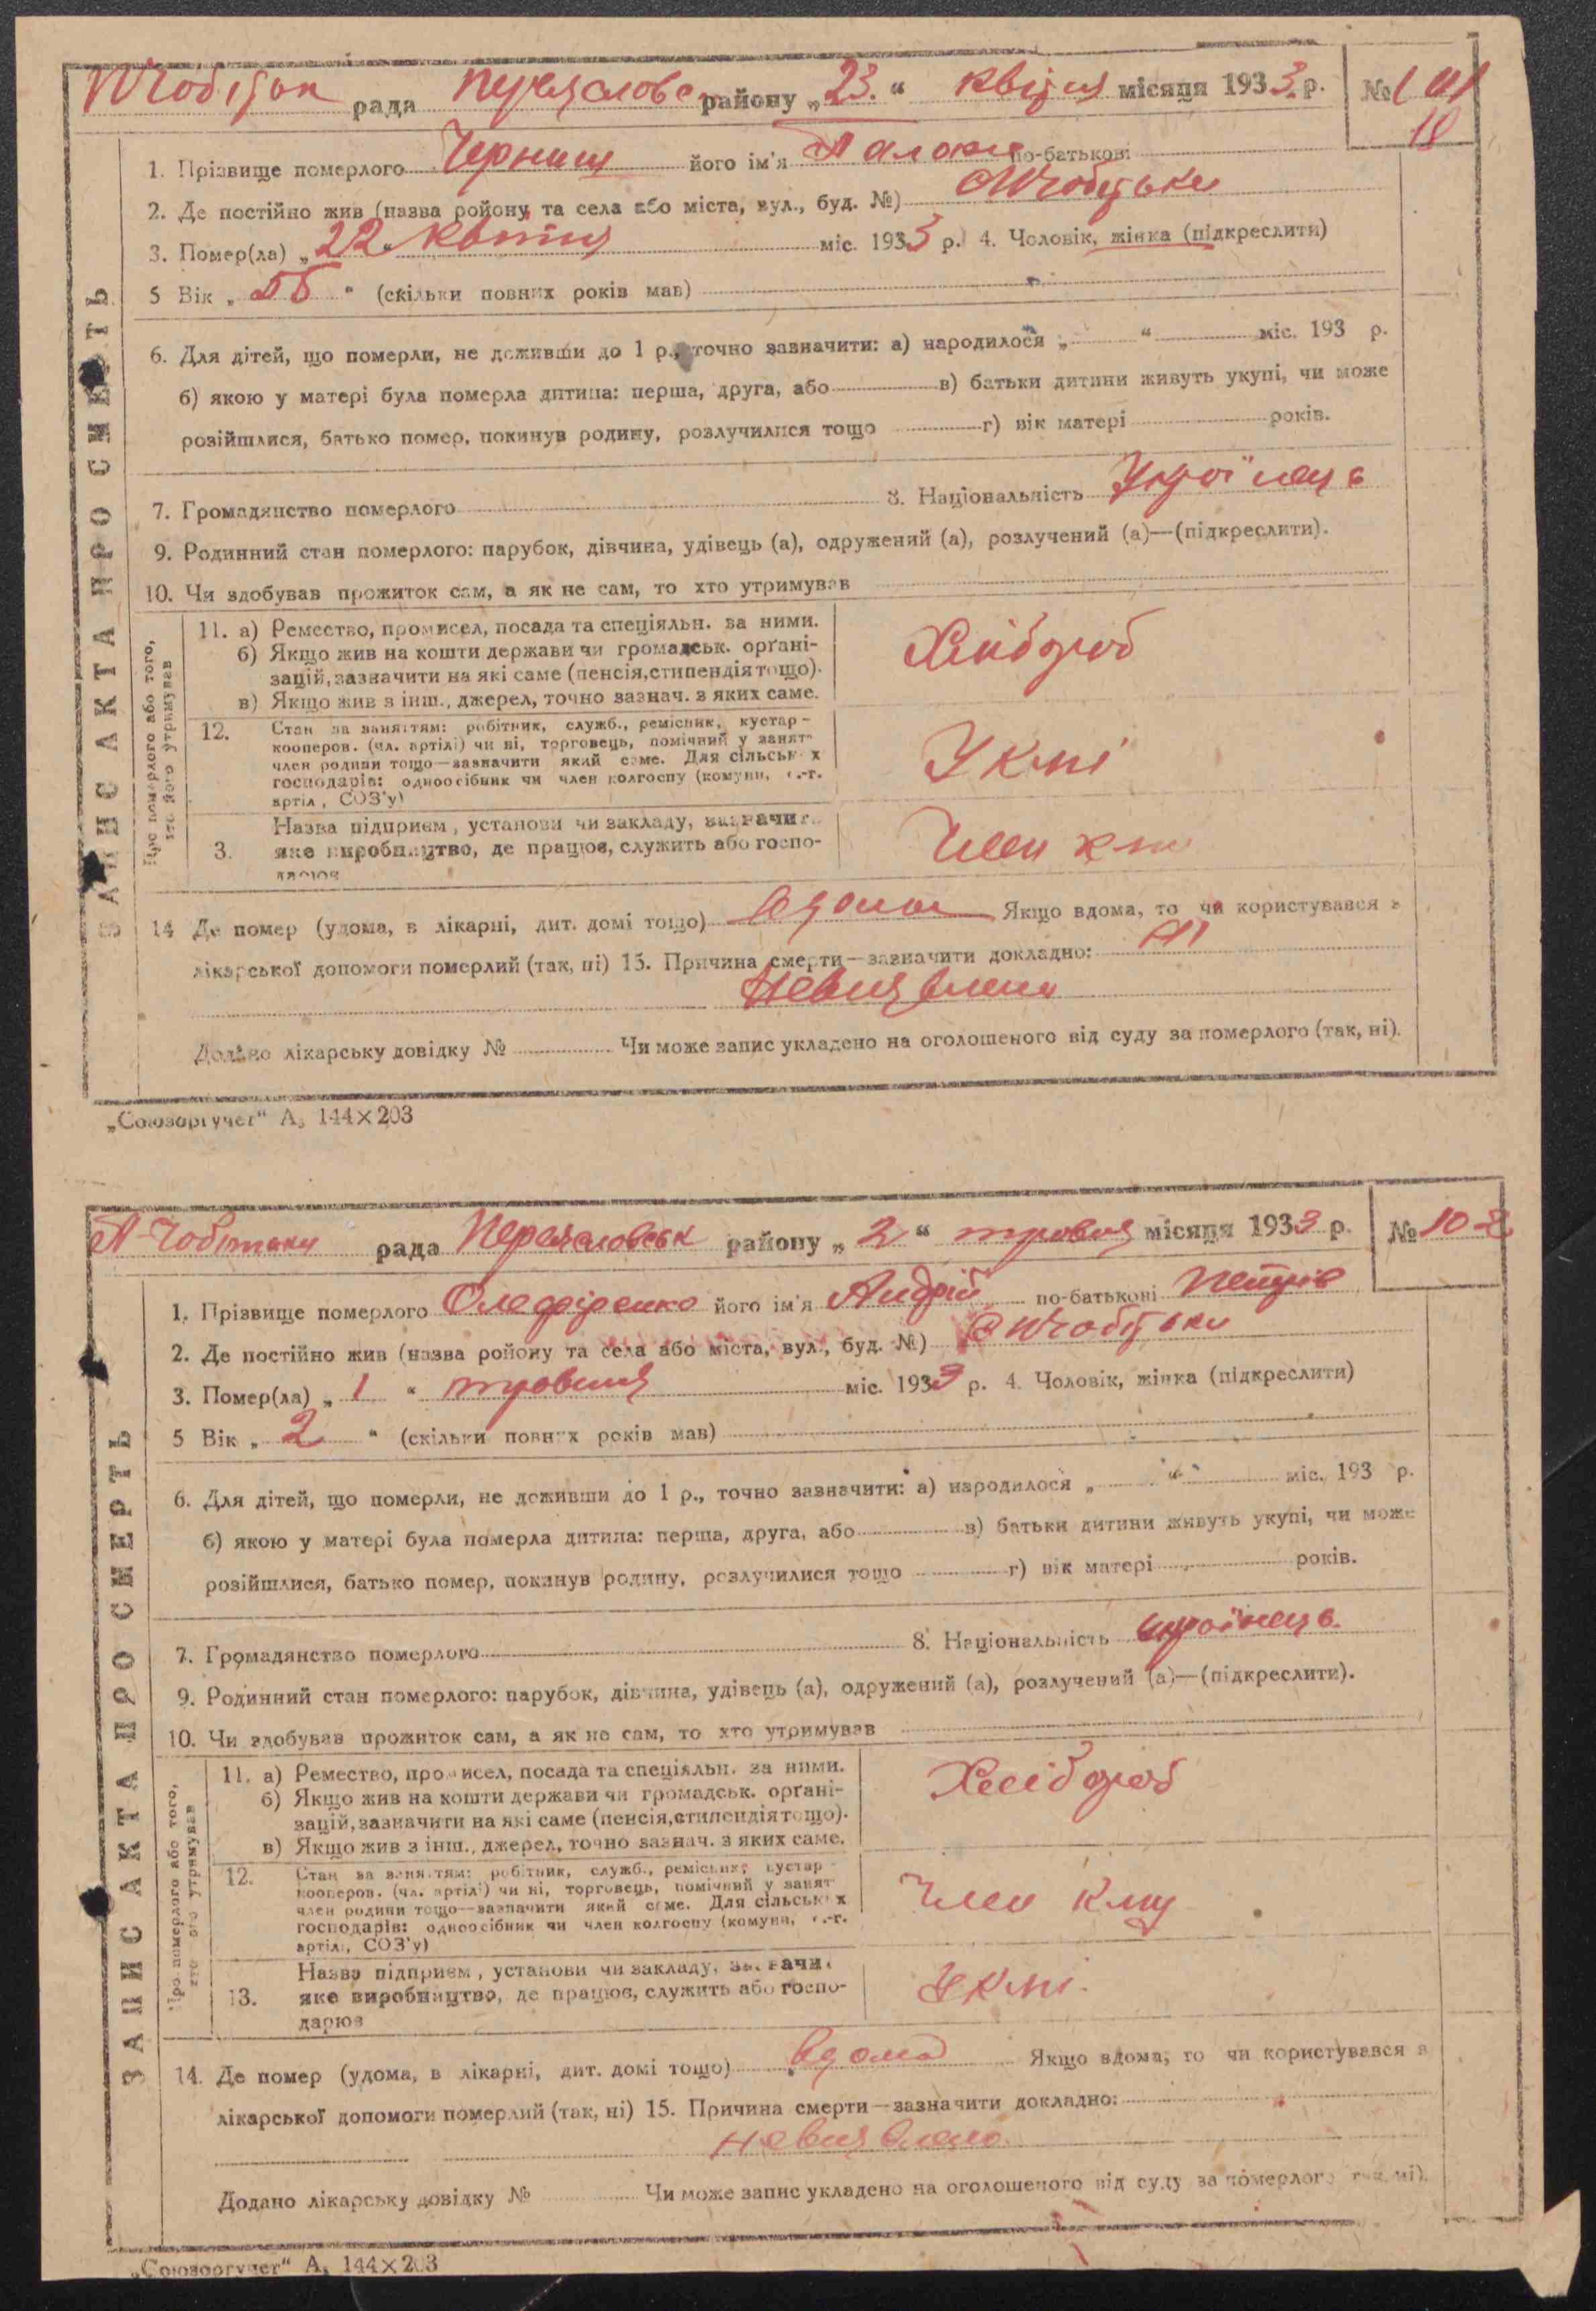 рада району „23.“ квітня місяця 1933 р. №101
18
1. Прізвище померлого Черниш його ім'я по-батькові
2. Де постійно жив (назва ройону та села або міста, вул., буд. №)
3. Помер(ла) „22“ квітня міс. 1933 р. 4. Чоловік, жінка (підкреслити)
5 Вік „55“ (скільки повних років мав)
6. Для дітей, що померли, не доживши до 1 р., точно зазначити: а) народилося „ “ міс. 193 р.
б) якою у матері була померла дитина: перша, друга, або в) батьки дитини живуть укупі, чи може
розійшлися, батько помер, покинув родину, розлучилися тощо г) вік матері років.
7. Громадянство померлого 8. Національність Українець
9. Родинний стан померлого: парубок, дівчина, удівець (а), одружений (а), розлучений (а)—(підкреслити).
10. Чи здобував прожиток сам, а як не сам, то хто утримував
ЗАПИС АКТА ПРО СМЕРТЬ
Про померлого або того,
хто його утримував
11. а) Ремество, промисел, посада та спеціяльн. за ними.
б) Якщо жив на кошти держави чи громадськ. орґані-
зацій, зазначити на які саме (пенсія, стипендія тощо).
в) Якщо жив з інш., джерел, точно зазнач. з яких саме.
Хлібороб
12. Стан за заняттям: робітник, служб., ремісник, кустар-
кооперов. (чл. артілі) чи ні, торговець, помічний у занят
член родини тощо—зазначити який саме. Для сільськ х
господарів: одноосібник чи член колгоспу (комуни, с.-г.
артіл, СОЗ'у)
3. Назва підприєм, установи чи закладу, зазначит
яке виробництво, де працює, служить або госпо-
дарює
Член
14 Де помер (удома, в лікарні, дит. домі тощо) вдома Якщо вдома, то чи користувався з
лікарської допомоги померлий (так, ні) 15. Причина смерти—зазначити докладно: ні
Невиявлена
Додано лікарську довідку № Чи може запис укладено на оголошеного від суду за померлого (так, ні).
„Союзоргучет“ А₅ 144×203
рада Переяславськ району „2“ травня місяця 1933 р. №102
1. Прізвище померлого Олефіренко його ім'я Андрій по-батькові Петрів
2. Де постійно жив (назва ройону та села або міста, вул., буд. №)
3. Помер(ла) „1“ травня міс. 1933 р. 4. Чоловік, жінка (підкреслити)
5 Вік „2“ (скільки повних років мав)
6. Для дітей, що померли, не доживши до 1 р., точно зазначити: а) народилося „ “ міс. 193 р.
б) якою у матері була померла дитина: перша, друга, або в) батьки дитини живуть укупі, чи може
розійшлися, батько помер, покинув родину, розлучилися тощо г) вік матері років.
7. Громадянство померлого 8. Національність українець.
9. Родинний стан померлого: парубок, дівчина, удівець (а), одружений (а), розлучений (а)—(підкреслити).
10. Чи здобував прожиток сам, а як не сам, то хто утримував
ЗАПИС АКТА ПРО СМЕРТЬ
Про померлого або того,
хто його утримував
11. а) Ремество, промисел, посада та спеціяльн. за ними.
б) Якщо жив на кошти держави чи громадськ. орґані-
зацій, зазначити на які саме (пенсія, стипендія тощо).
в) Якщо жив з інш., джерел, точно зазнач. з яких саме.
Хлібороб
12. Стан за заняттям: робітник, служб., ремісник, кустар-
кооперов. (чл. артілі) чи ні, торговець, помічний у занят
член родини тощо—зазначити який саме. Для сільськ х
господарів: одноосібник чи член колгоспу (комуни, с.-г.
артіл, СОЗ'у)
Член
13. Назва підприєм, установи чи закладу, зазначи
яке виробництво, де працює, служить або госпо-
дарює
14. Де помер (удома, в лікарні, дит. домі тощо) вдома Якщо вдома, то чи користувався з
лікарської допомоги померлий (так, ні) 15. Причина смерти—зазначити докладно:
невиявлено.
Додано лікарську довідку № Чи може запис укладено на оголошеного від суду за померлого так, ні).
„Союзоргучет“ А₅ 144×203